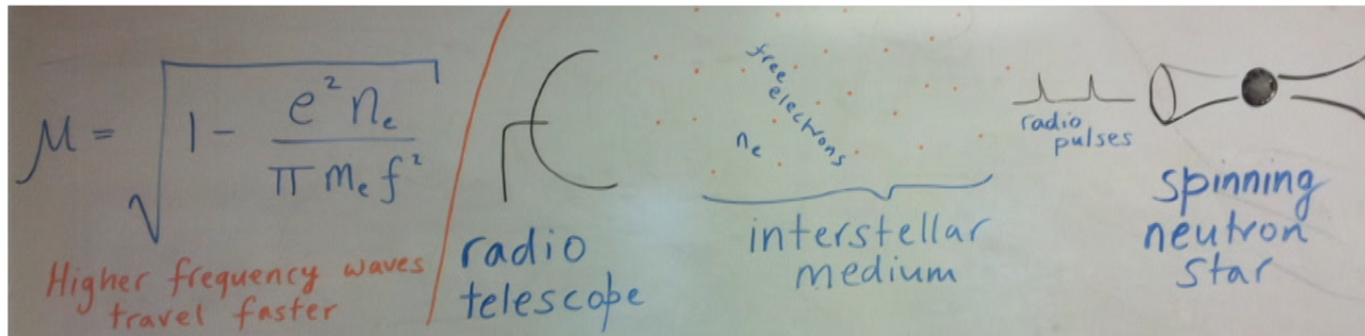 μ = √(1 - e² nₑ / π mₑ f²)
Higher frequency waves
travel faster
radio
telescope
free
electrons
nₑ
interstellar
medium
radio
pulses
spinning
neutron
star